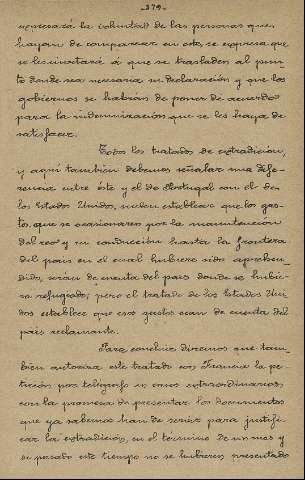 -379-
necesaria la voluntad de las personas que
hayan de comparecer en esto, se expresa que
se les invitará á que se trasladen al pun-
to donde sea necesaria su declaración y que los
gobiernos se habrán de poner de acuerdo
para la indemnización que se les haya de
satisfacer.
Todos los tratados de extradicion,
y aquí tambien debemos señalar una dife-
rencia entre éste y el de Portugal con el de
los Estados Unidos, suelen establecer que los gas-
tos, que se ocasionaren por la manutención
del reo y su conducción hasta la frontera
del pais en el cual hubiere sido aprehen-
dido, serán de cuenta del pais donde se hubie-
ra refugiado; pero el tratado de los Estados Uni-
dos establece que esos gastos sean de cuenta del
pais reclamante.
Para concluir diremos que tam-
bien autoriza este tratado con Francia la pe-
tición por telégrafo en casos extraordinarios,
con la promesa de presentar los documentos
que ya sabemos han de servir para justifi-
car la extradición, en el termino de un mes y
si pasado este tiempo no se hubieren presentado